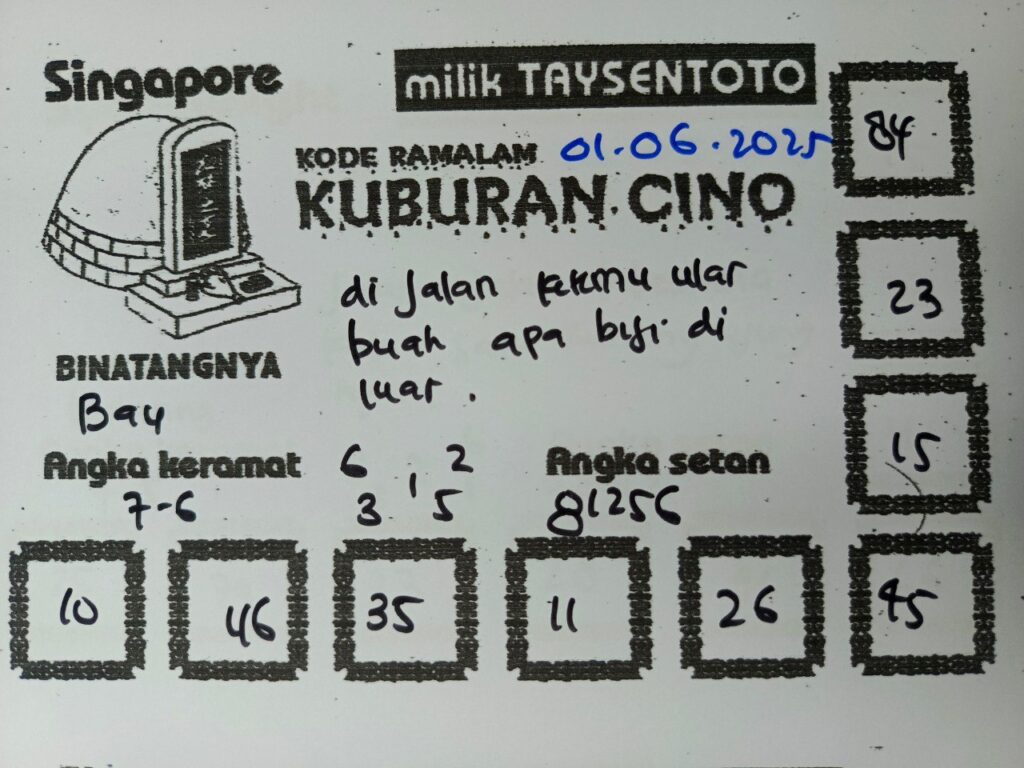 Singapore
milik TAYSENTOTO
KODE RAMALAM 01.06.2025
KUBURAN CINO
di jalan ular
buah apa di
luar.
BINATANGNYA
Angka keramat
7-6
6 2
1
3 5
Angka setan
81256
84
23
15
10 46 35 11 26 45